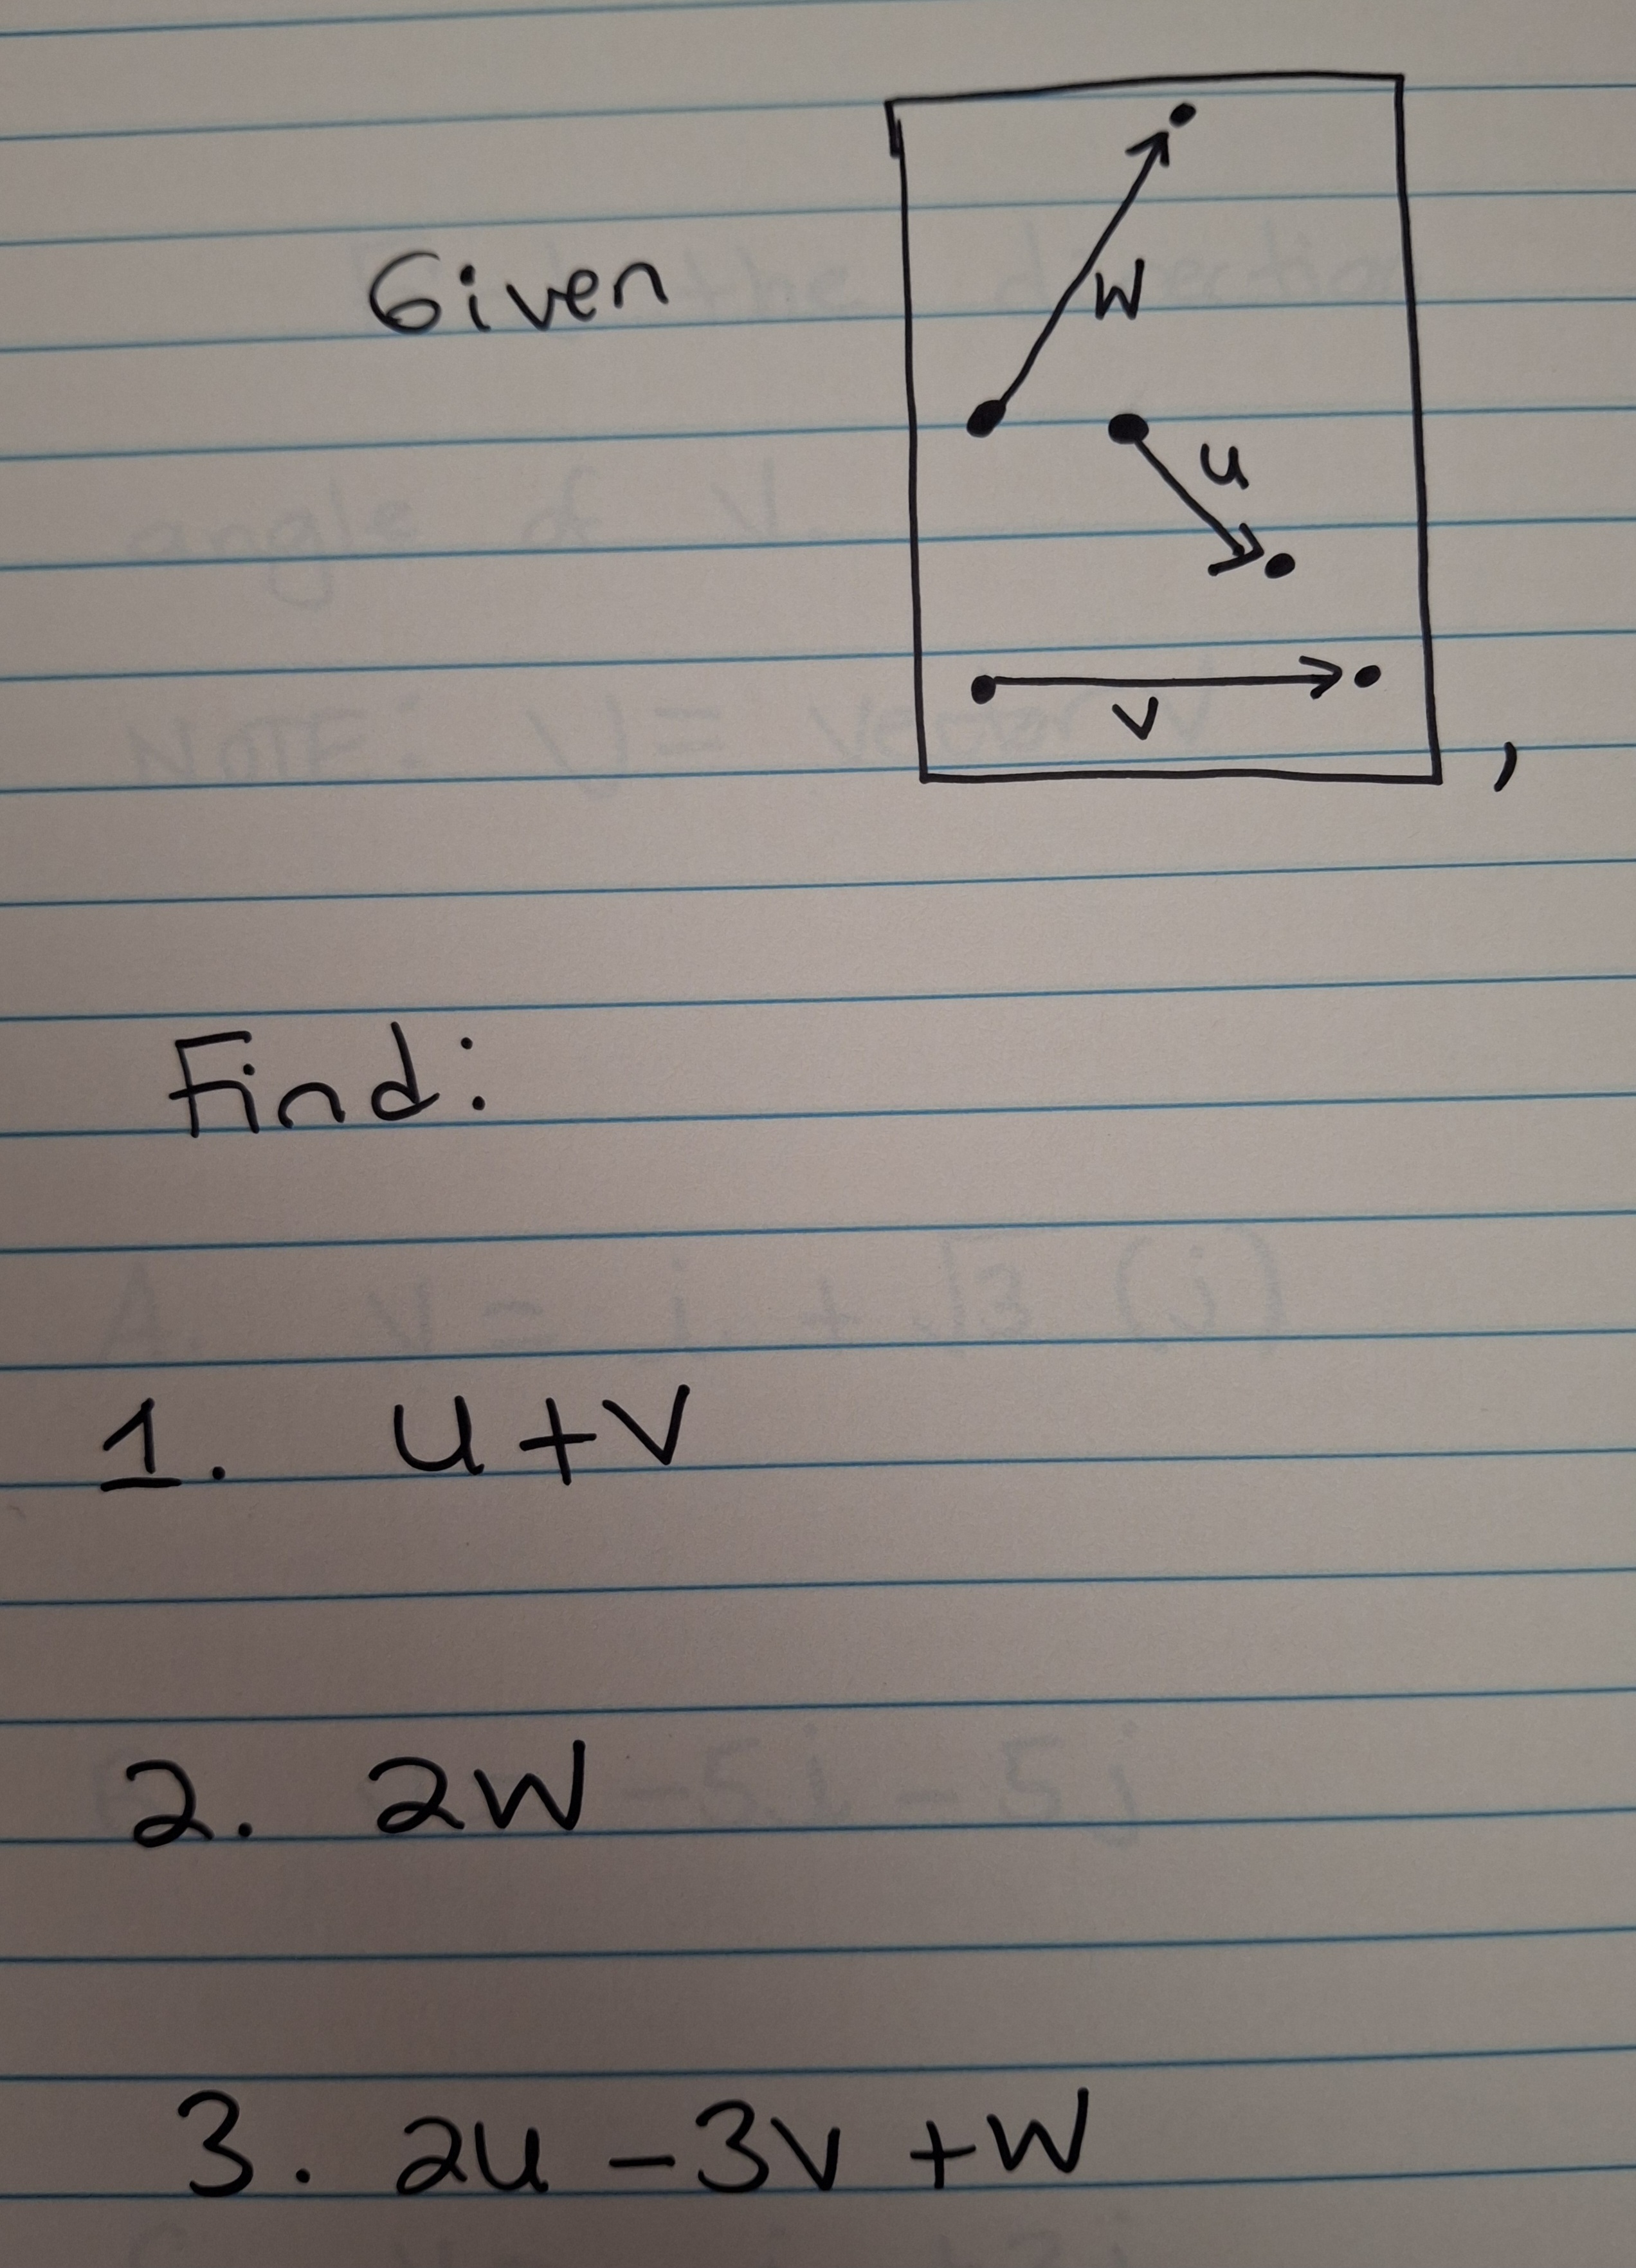 Given
W
u
v
,
Find:
1. u+v
2. 2W
3. 2u -3v +W